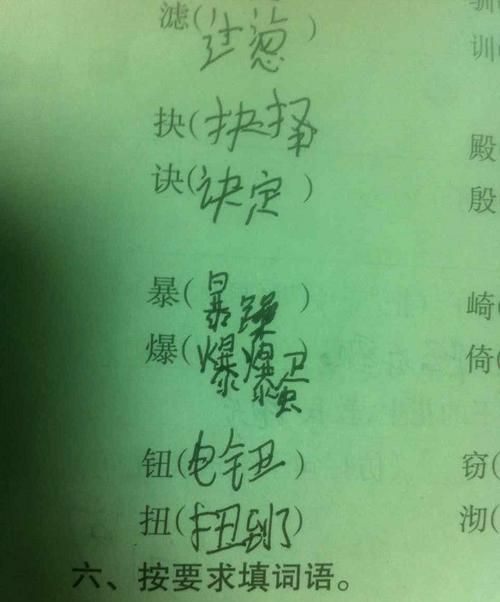 滤(过滤)
驯
训
抉(抉择)
殿
诀(诀定)
殷
暴(暴躁)
崎(
爆(爆爆)
倚(
钮(电钮)
窃(
扭(扭到了)
沏(
六、按要求填词语。